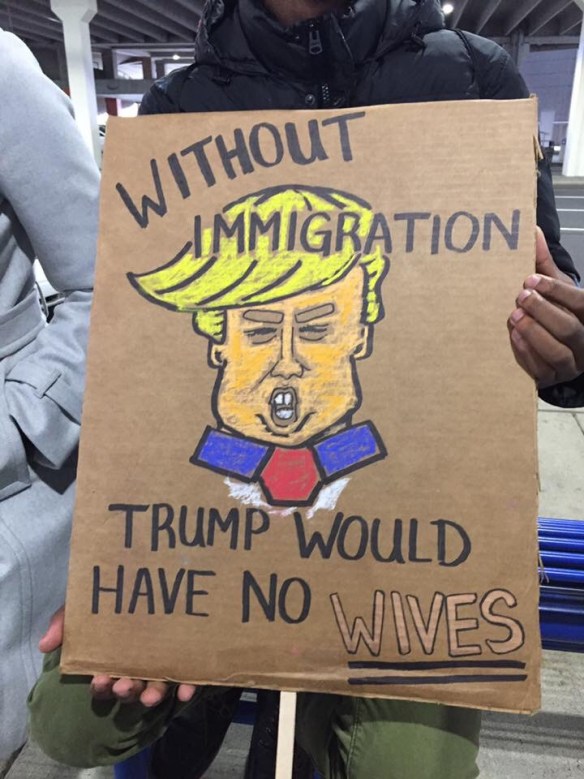 WITHOUT
IMMIGRATION
TRUMP WOULD
HAVE NO WIVES